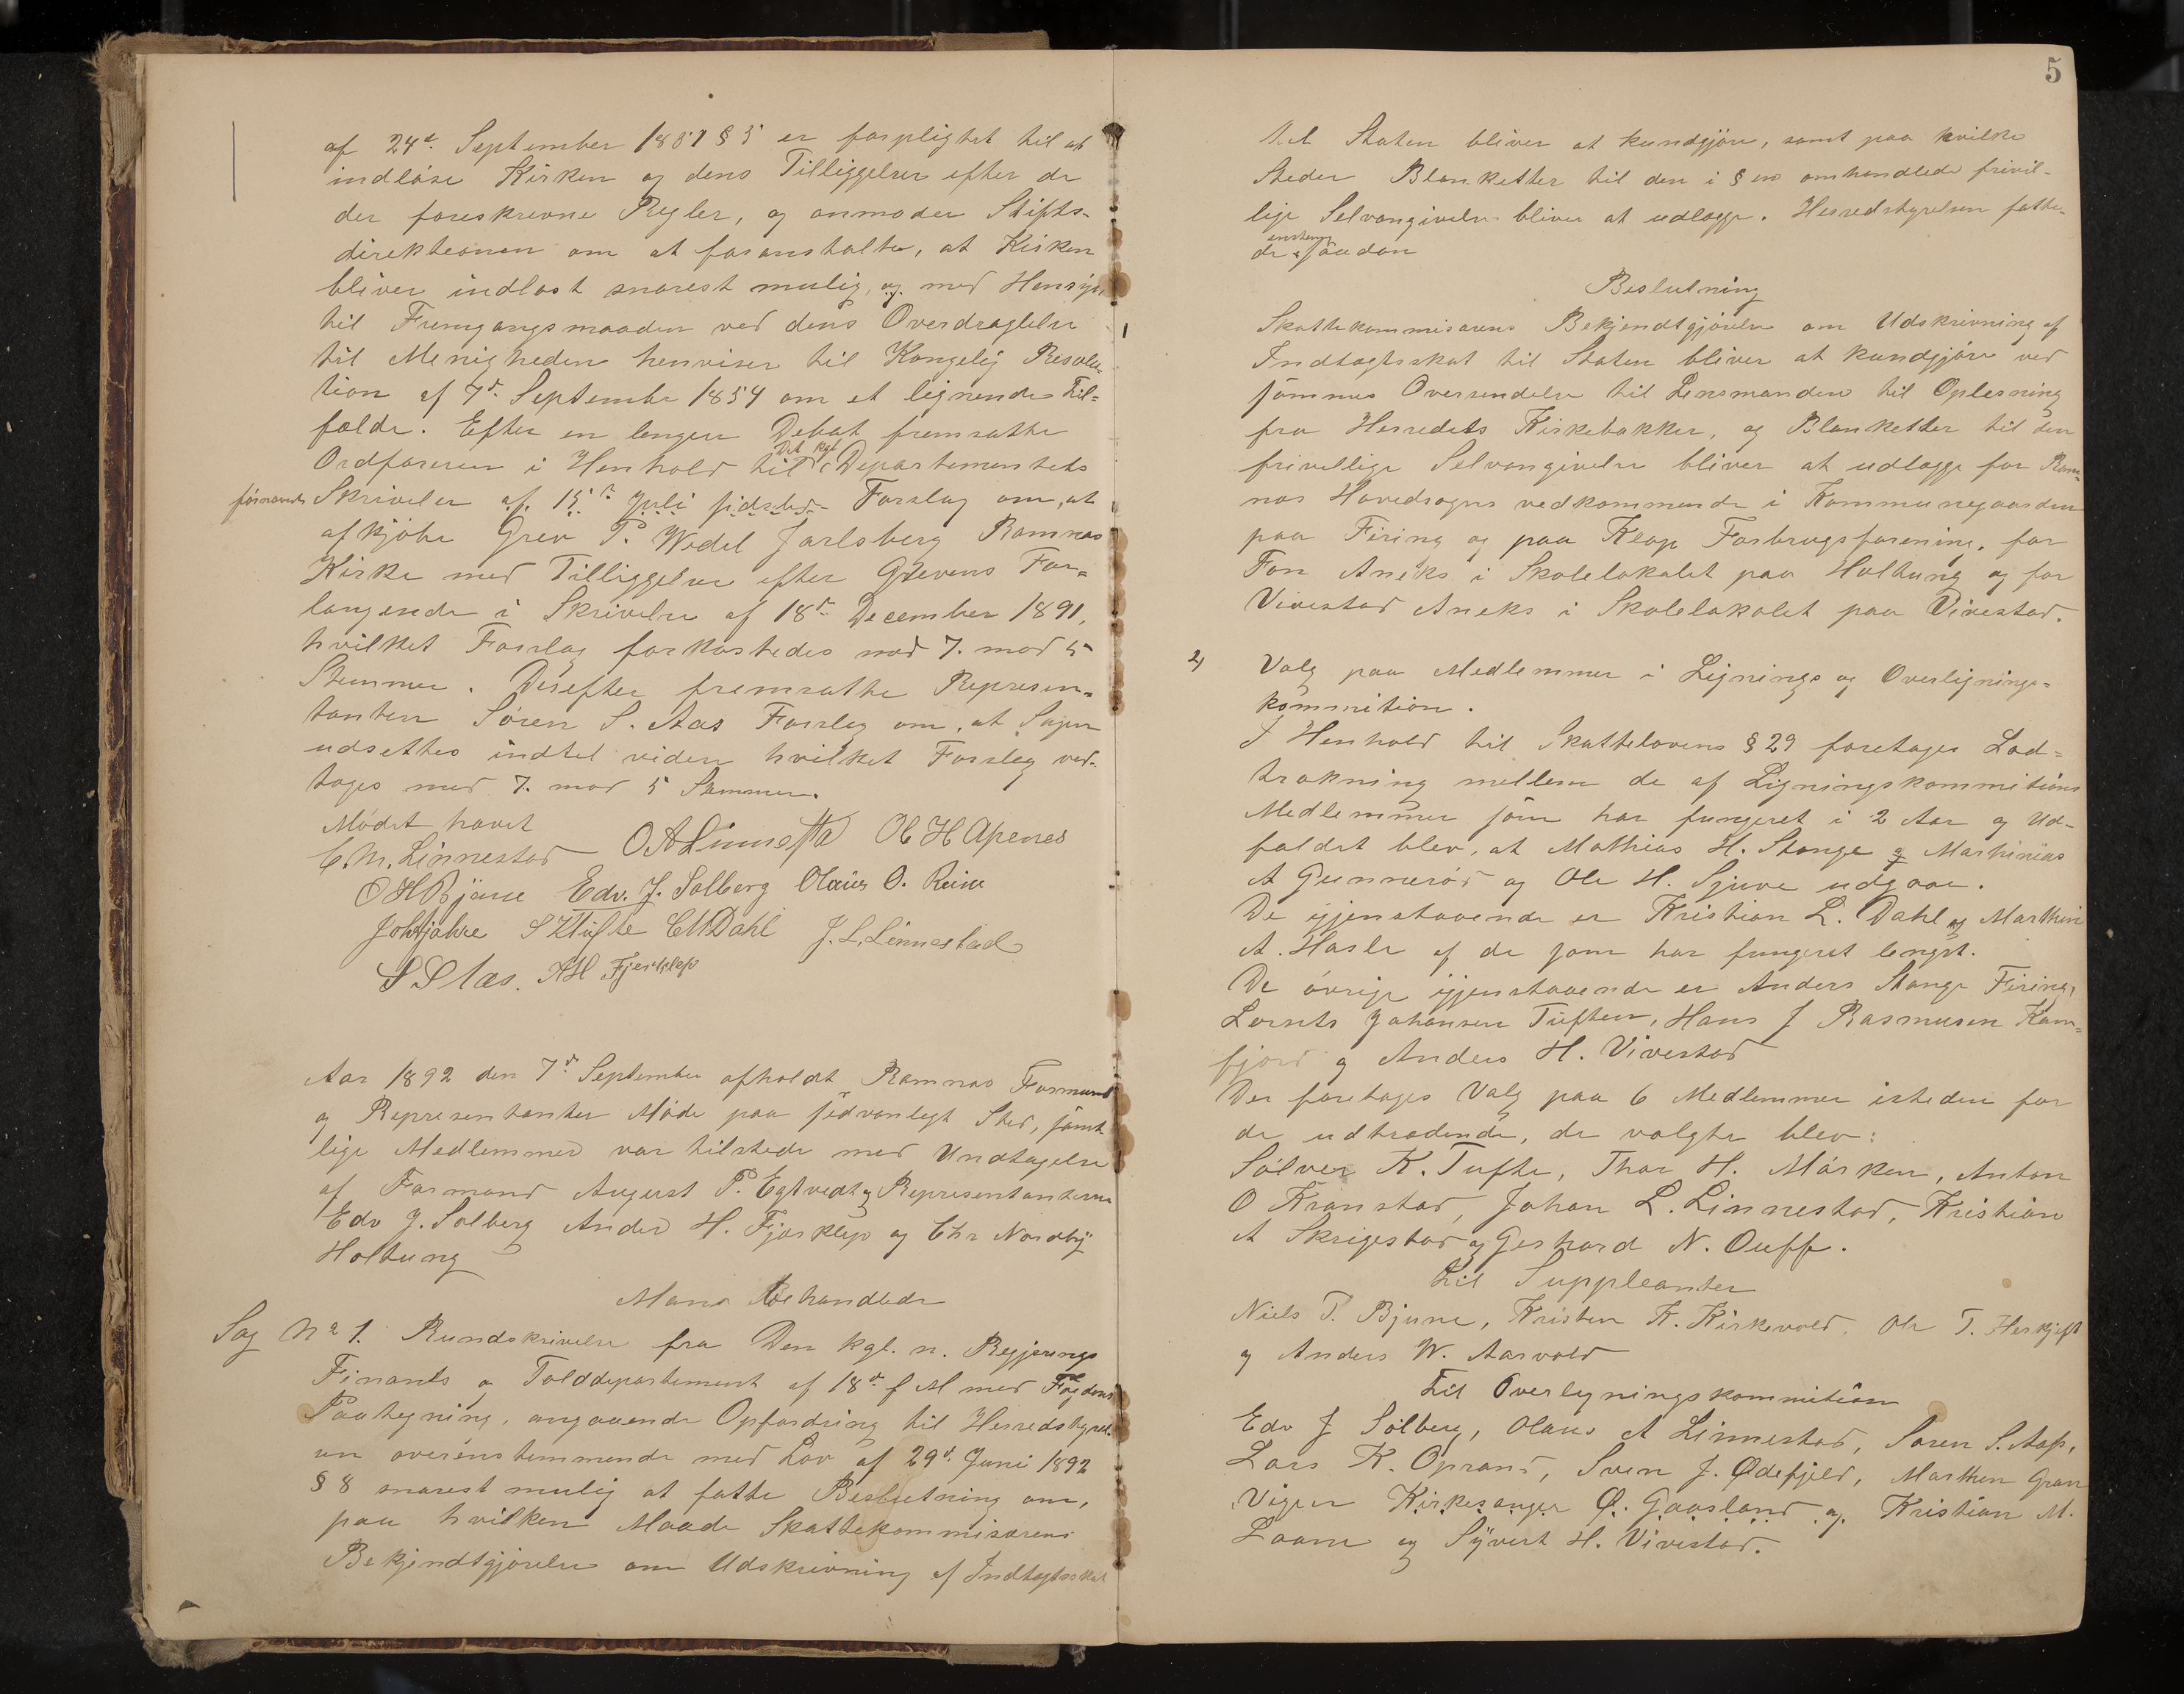 af 24de September 1851 § 5 er forpligtet til at
indløse Kirken og dens Tilliggelser efter de
der foreskrevne Regler, og anmoder Stifts-
direktionen om at foranstalte, at Kirken
bliver indløst snarest mulig, og med Hensyn
til Fremgangsmaaden ved dens Overdragelse
til Menigheden henviser til Kongelig Resolu-
tion af 7de September 1854 om et lignende Til-
fælde. Efter en længere Debat fremsatte
Ordføreren i Henhold til det kgl Departementets
førnævnte Skrivelse af 15de Juli sidstl. Forslag om, at
afkjøbe Grev P. Wedel Jarlsberg Ramnæs
Kirke med Tilliggelser efter Grevens For-
langende i Skrivelse af 18de December 1891,
hvilket Forslag forkastedes med 7. mod 5
Stemmer. Derefter fremsatte Represen-
tanten Søren S. Aas Forslag om, at Sagen
udsettes indtil videre hvilket Forslag ved-
toges med 7. mod 5 Stemmer.
Mødet hævet
C. M. Linnestad O A Linnestad Ol H Apenes
O H Bjune Edv. J. Solberg Olaus O. Reine
Joh Hjahre S K Tufte C M Dahl J. L. Linnestad
S S Aas. A H Fjerklep
Aar 1892 den 7de September afholdt Ramnæs Formænd
og Representanter Møde paa sedvanlegt Sted, samt-
lige Medlemmer var tilstede med Undtagelse
af Formand August P. Egtvedt og Representanterne
Edv J. Solberg Anders H. Fjærklep og Chr Nordby
Holtung
Man Behandlede
Sag No 1. Rundskrivelse fra Den kgl. n. Regjerings
Finants og Tolddepartement af 18de f M med Fogdens
Paategning, angaaende Opfordring til Herredstyrel-
sen overensstemmende med Lov af 29de Juni 1892
§ 8 snarest mulig at fatte Beslutning om,
paa hvilken Maade Skattekommisærens
Bekjendtgjørelse om Udskrivning af Indtægtsskat
5
til Staten bliver at kundgjøre, samt paa hvilke
Steder Blanketter til den i § en omhandlede frivil-
lige Selvangivelse bliver at udlægge. Herredstyrelsen fatte-
de enstem saadan
Beslutning
Skattekommisærens Bekjendtgjørelse om Udskrivning af
Indtægtsskat til Staten bliver at kundgjøre ved
sammes Oversendelse til Lensmanden til Oplesning
fra Herredets Kirkebakker, og Blanketter til den
frivillige Selvangivelse bliver at udlægge for Ram-
næs Hovedsogns vedkommende i Kommunegaarden
paa Firing og paa Klop Forbrugsforening, for
Fon Aneks i Skolelokalet paa Holtung og for
Vivestad Aneks i Skolelokalet paa Vivestad.
2) Valg paa Medlemmer i Lignings og Overlignings-
kommition.
I Henhold til Skattelovens § 29 foretages Lod-
trækning mellem de af Ligningskommitions
Medlemmer som har fungeret i 2 Aar og Ud-
faldet blev, at Mathias H. Stange og Marhinius
A Gunnerød og Ole H. Sjuve udgaar.
De igjenstaaende er Kristian L. Dahl og Marthin
A. Hasle af de som har fungeret lengst.
De øvrige igjenstaaende er Anders Stange Firing,
Lorents Johansen Tuften, Hans J Rasmusen Kam-
fjord og Anders H. Vivestad
Der foretages Valg paa 6 Medlemmer isteden for
de udtrædende, de valgte blev:
Sølver K. Tufte, Thor H. Mørken, Anton
O Kranstad, Johan L. Linnestad, Kristian
A Skrigestad og Gerhard N. Ouff.
til Suppleanter
Niels T. Bjune, Kristen K. Kirkevold, Ole T. Herkjøft
og Anders W. Aarvold
til Overlygningskommition
Edv J Solberg, Olaus A Linnestad, Søren S. Aas,
Lars K. Oprand, Sven J. Ødefjeld, Marthen Gran
Vigen Kirkesanger O. Gaasland og Kristian M.
Laane og Syvert H. Vivestad.